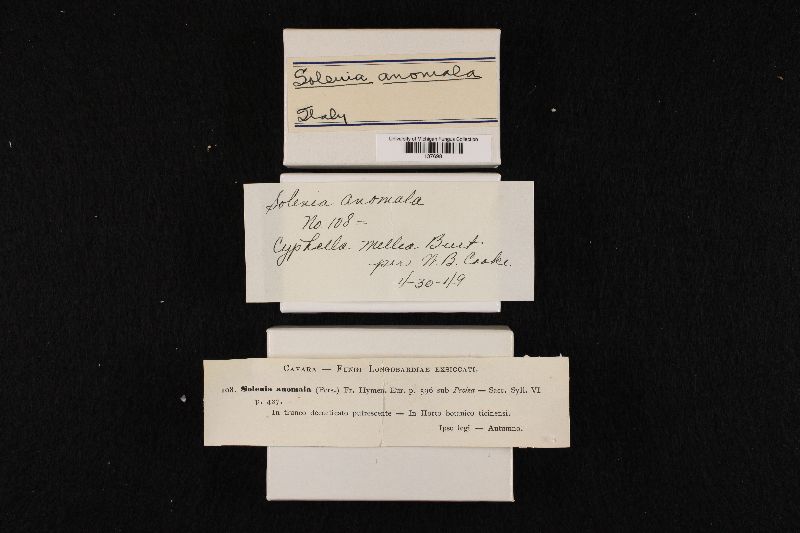 Solenia anomala
Italy
University of Michigan Fungus Collection
Solenia anomala
No. 108 –
Cyphella mellea Burt.
W. B. Cooke.
4-30-49
CAVARA — FUNGI LONGOBARDIAE EXSICCATI.
108. Solenia anomala (Pers.) Fr. Hymen. Eur. p. 596 sub Peziza — Sacc. Syll. VI
p. 427.
In trunco decorticato putrescente — In Horto botanico ticinensi.
Ipse legi — Autumno.